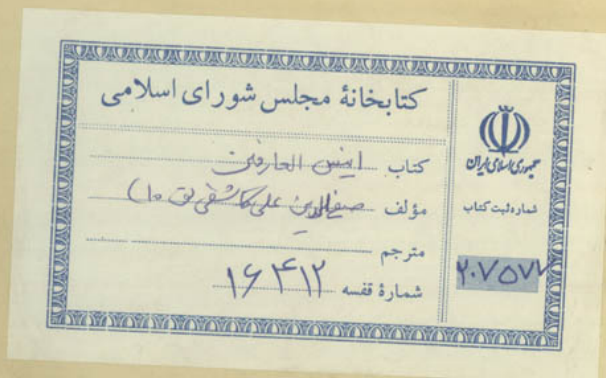 کتابخانهٔ مجلس شورای اسلامی
کتاب انیس العارفین
مؤلف صفی‌الدین علی کاشفی ق ۱۰)
مترجم
شمارهٔ قفسه ۱۶۴۱۲
جمهوری اسلامی ایران
شماره ثبت کتاب